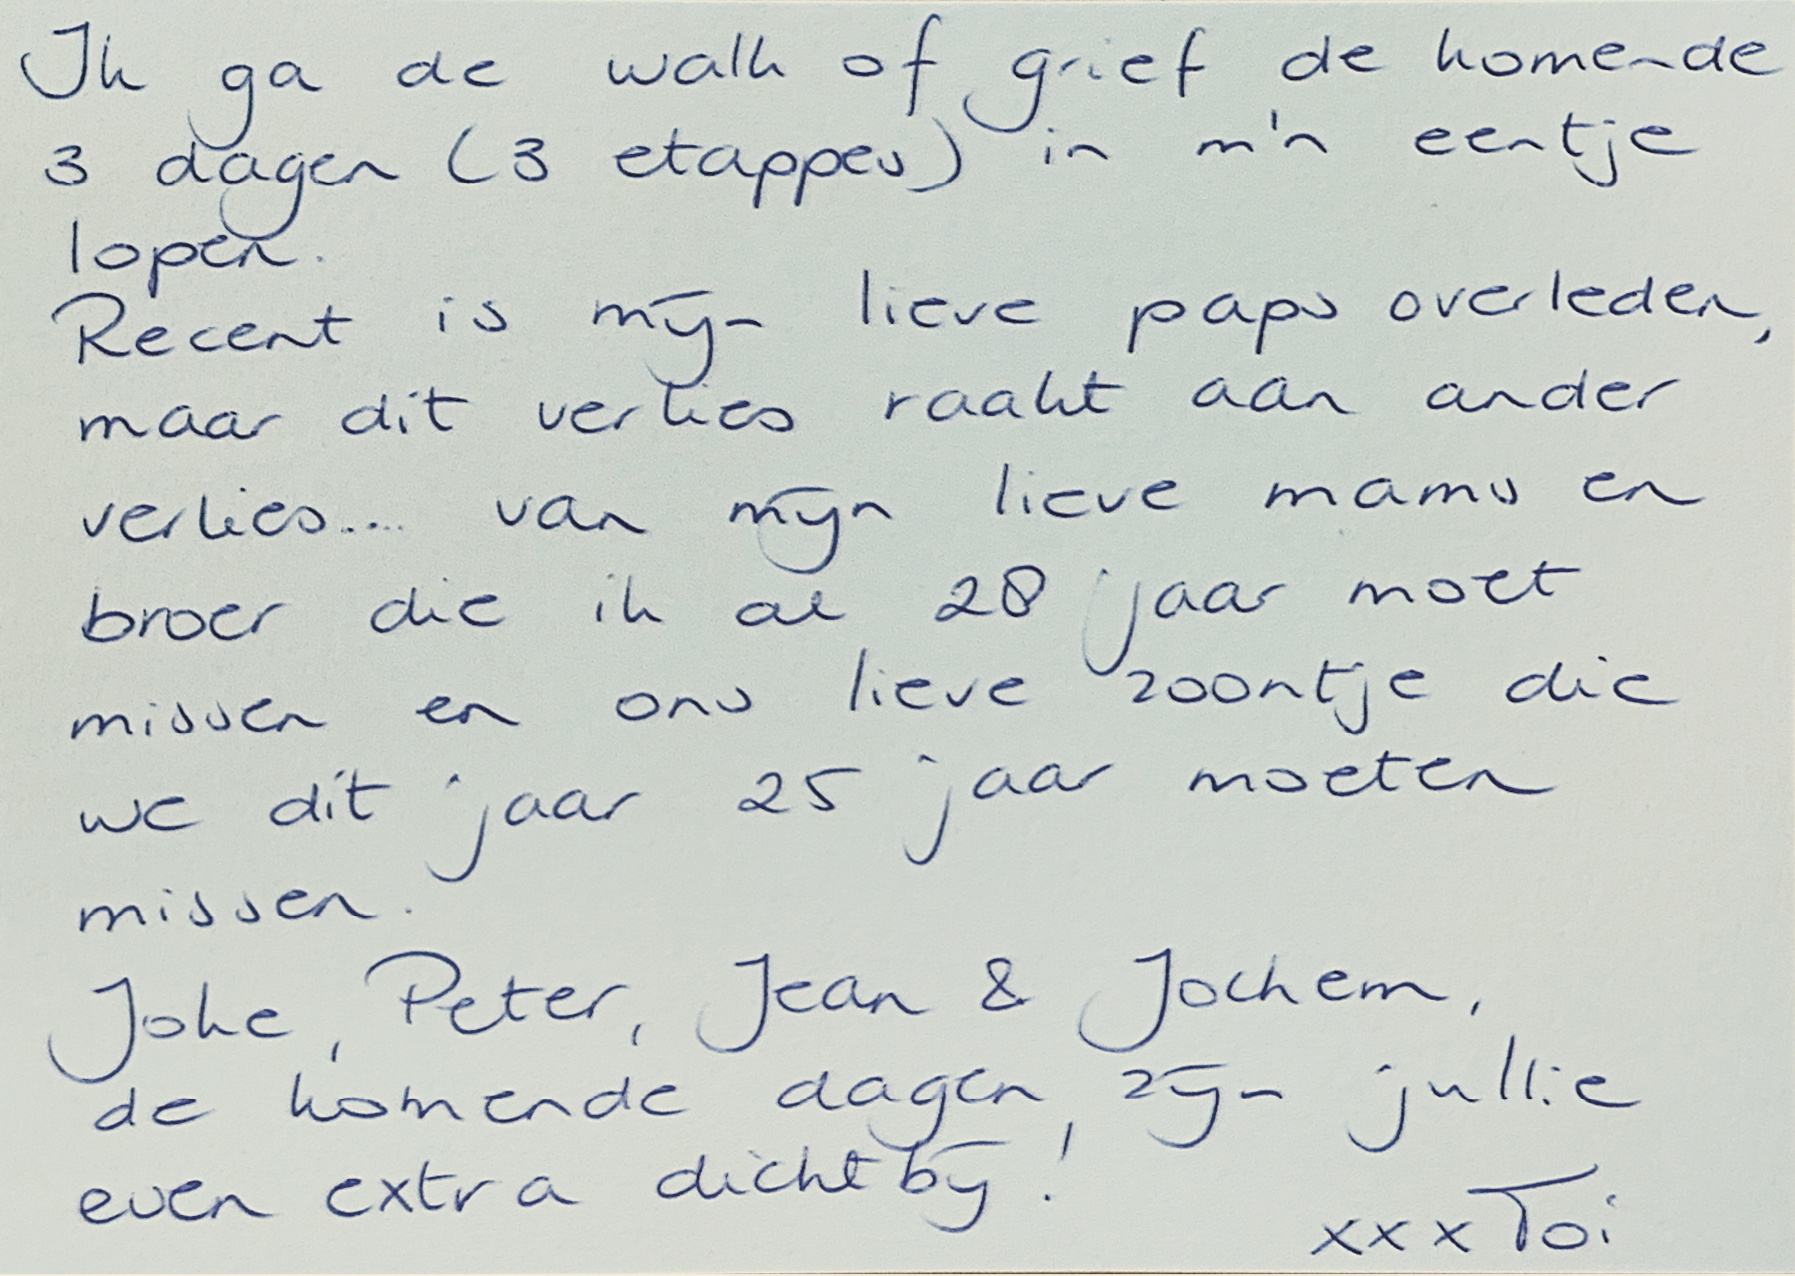 Ik ga de walk of grief de komende
3 dagen (3 etappes) in m'n eentje
lopen.
Recent is mijn lieve paps overleden,
maar dit verlies raakt aan ander
verlies.... van mijn lieve mams en
broer die ik al 28 jaar moet
missen en ons lieve zoontje die
we dit jaar 25 jaar moeten
missen.
Joke, Peter, Jean & Jochem,
de komende dagen zijn jullie
even extra dichtbij!
xxx Toi